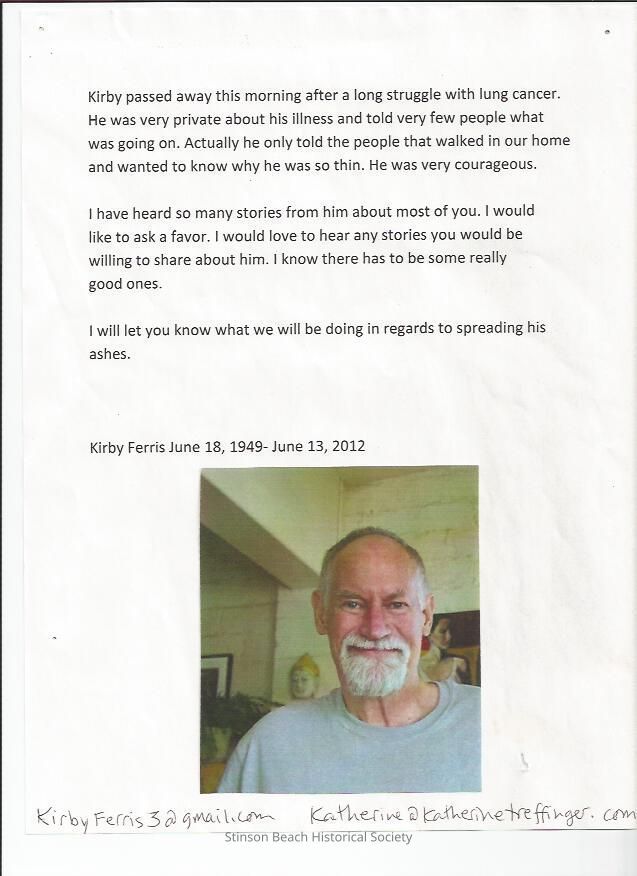 Kirby passed away this morning after a long struggle with lung cancer.
He was very private about his illness and told very few people what
was going on. Actually he only told the people that walked in our home
and wanted to know why he was so thin. He was very courageous.
I have heard so many stories from him about most of you. I would
like to ask a favor. I would love to hear any stories you would be
willing to share about him. I know there has to be some really
good ones.
I will let you know what we will be doing in regards to spreading his
ashes.
Kirby Ferris June 18, 1949- June 13, 2012
Kirby Ferris3@gmail.com Katherine@katherinetreffinger.com
Stinson Beach Historical Society